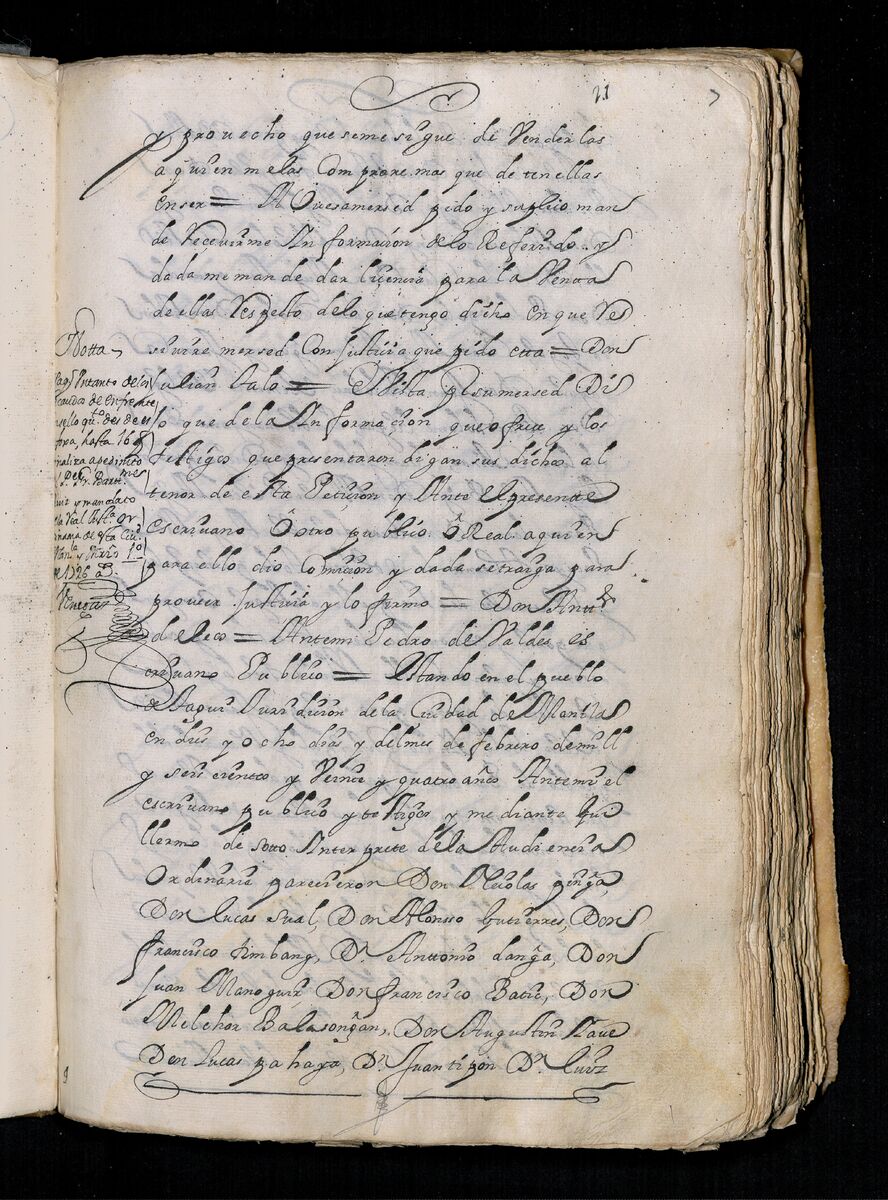 21
7
y provecho que seme sigue de Venderlas
a quien melas Comprare mas que detenellas
enser = A Vuesamersed pido y suplico man
de Recevirme Informaçion delo Referido y
dada memande dar liçençia para la Venta
de ellas Respecto delo que tengo dicho en que Res
sivire mersed Con justicia que pido etta = Don
Julian talo = Vista por sumersed Dis
o que dela Informaçion que ofrese y los
testigos que presentaron digan sus dichos al
tenor de esta Petiçion y Ante el presente
escrivano o otro publico o Real a quien
para ello dio Comision y dada se traiga para
proveer justicia y lo firmo = Don Anto
de leco = Antemi Pedro de Valdes es
crivano Publico = estando en el pueblo
de Taguii Jurisdicion dela Ciudad de Manila
en dies y ocho dias y del mes de febrero de mill
y seis cientos y Veinte y quatro años Antemi el
escrivano publico y testigos y mediante Gui
llermo de soto Interprete dela Audiencia
Ordinaria parecieron Don Nicolas pinga,
Don Lucas sual, Don Alonso Gutierres, Don
francisco timbang, Dn Antonio danga, Don
Juan Manoguit Don francisco Bacic, Don
Melchor Balasongan, Don Augustin
Don Lucas pahaya, Dn Juan tipon Dn Luiz
Notta
enfrente
sello qto desde es
foxa, hasta 168
finaliza a pedimto
y mandato
de esta Ciud
de 1726 as.